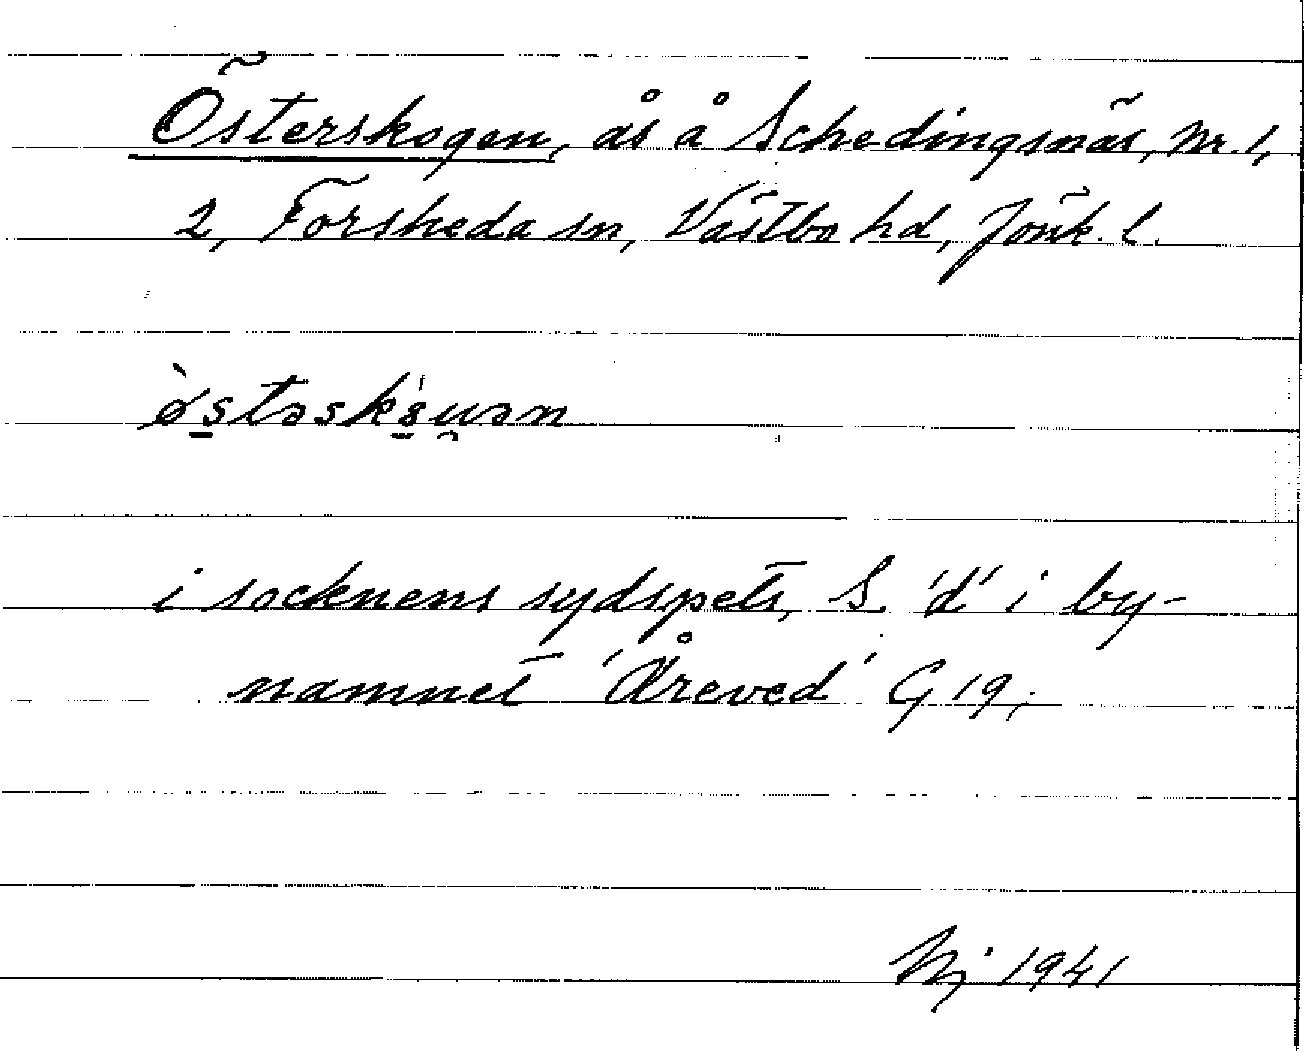 Österskogen, ås å Schedingsnäs, Nr. 1,
2, Forsheda sn, Västbo hd, Jönk. l.
i socknens sydspets, S 'd' i by-
namnet 'Åreved' G 19;
1941